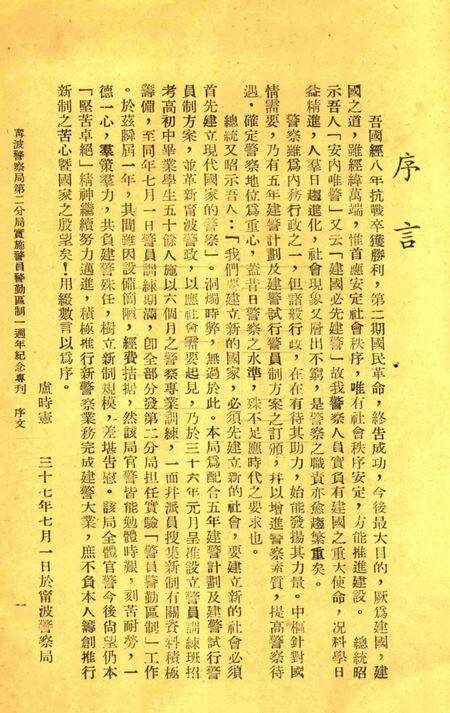 序言
吾國經八年抗戰卒獲勝利，第二期國民革命，終告成功，今後最大目的，厥爲建國，建
國之道，雖經緯萬端，惟首應安定社會秩序，唯有社會秩序安定，方能推進建設。　總統昭
示吾人「安内唯警」又云「建國必先建警」故我警察人員實負有建國之重大使命，况科學日
益精進，人羣日趨進化，社會現象又層出不窮，是警察之職責亦愈趨繁重矣。
警察雖爲内務行政之一，但諸般行政，在在有待其助力，始能發揚其力量。中樞針對國
情需要，乃有五年建警計劃及建警試行警員制方案之訂頒，幷以增進警察素質，提高警察待
遇，確定警察地位爲重心，蓋昔日警察之水準，殊不足應時代之要求也。
總統又昭示吾人：「我們要建立新的國家，必須先建立新的社會，要建立新的社會必須
首先建立現代國家的警察」。洞燭時弊，無過於此。本局爲配合五年建警計劃及建警試行警
員制方案，並革新甯波警政，以應社會需要起見，乃於三十六年元月呈准設立警員訓練班招
考高初中畢業學生五十餘人施以六個月之警察專業訓練，一面幷派員搜集新制有關資料積極
籌備，至同年七月一日警員訓練期滿，卽全部分發第二分局担任實驗「警員警勤區制」工作
。於茲瞬屆一年，其間雖因設備簡陋，經費拮据，然該局官警皆能勉體時艱，刻苦耐勞，一
德一心，羣策羣力，共負建警殊任，樹立新制規模，差堪告慰。該局全體官警今後尙望仍本
「堅苦卓絕」精神繼續努力邁進，積極推行新警察業務完成建警大業，庶不負本人籌創推行
新制之苦心曁國家之殷望矣！用綴數言以爲序。
盧時憲　三十七年七月一日於甯波警察局
甯波警察局第二分局實施警員警勤區制一週年紀念專刊　序文　一